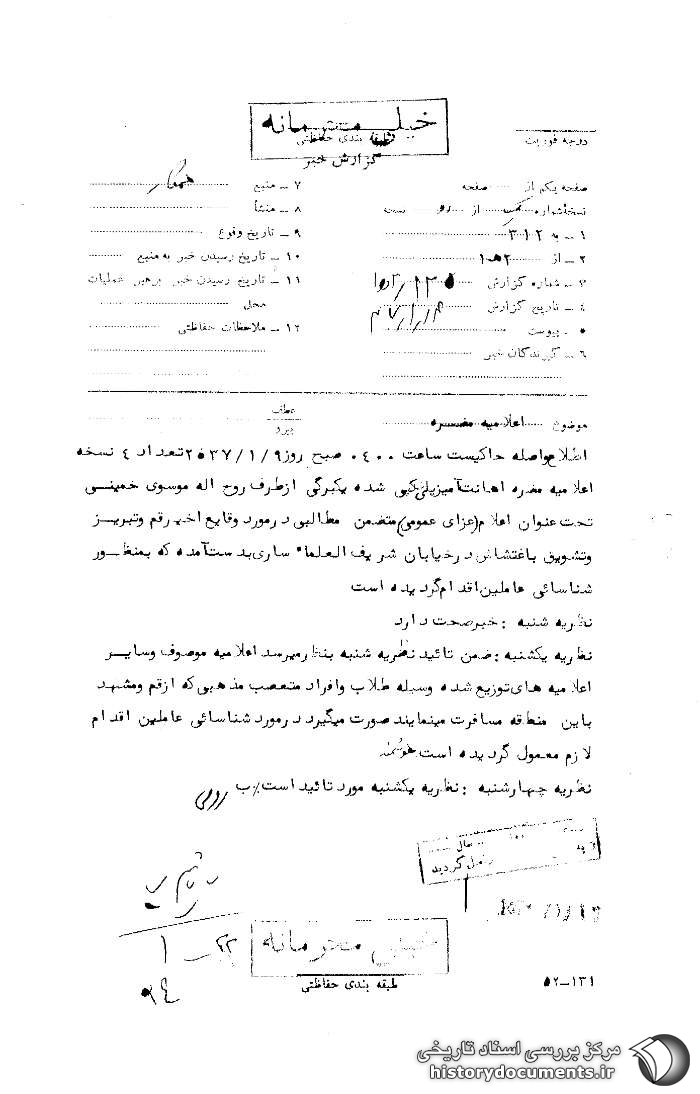 خیلی محرمانه
طبقه بندی حفاظتی
درجه فوریت
گزارش خبر
صفحه یکم از صفحه
۷ ـ منبع همکار
نسخه شماره یک از دو نسخه
۸ ـ منشأ
۱ ـ به ۳۱۲
۹ ـ تاریخ وقوع
۲ ـ از
۱۰ ـ تاریخ رسیدن خبر به منبع
۳ ـ شماره گزارش
۱۱ ـ تاریخ رسیدن خبر برهبر عملیات
محل
۴ ـ تاریخ گزارش
۱۲ ـ ملاحظات حفاظتی
۵ ـ پیوست
۶ ـ گیرندگان خبر
موضوع اعلامیه مضره
عطف
پیرو
اطلاع واصله حاکیست ساعت ۰۴۰۰ صبح روز ۲۵۳۷/۱/۹ تعداد ۴ نسخه
اعلامیه مضره اهانت‌آمیز پلی‌کپی شده یکبرگی ازطرف روح اله موسوی خمینی
تحت عنوان اعلام (عزای عمومی) متضمن مطالبی درمورد وقایع اخیر قم وتبریز
وتشویق باغتشاش درخیابان شریف العلماء ساری بدست‌آمده که بمنظور
شناسائی عاملین اقدام گردیده است
نظریه شنبه : خبرصحت دارد
نظریه یکشنبه : ضمن تائید نظریه شنبه بنظر میرسد اعلامیه موصوف وسایر
اعلامیه های توزیع شده وسیله طلاب وافراد متعصب مذهبی که ازقم ومشهد
باین منطقه مسافرت مینمایند صورت میگیرد درمورد شناسائی عاملین اقدام
لازم معمول گردیده است هوشمند
نظریه چهارشنبه : نظریه یکشنبه مورد تائید است/ب
گردید
۲۲ـ۱
خیلی محرمانه
طبقه بندی حفاظتی
۵۲-۱۳۱
مرکز بررسی اسناد تاریخی
historydocuments.ir